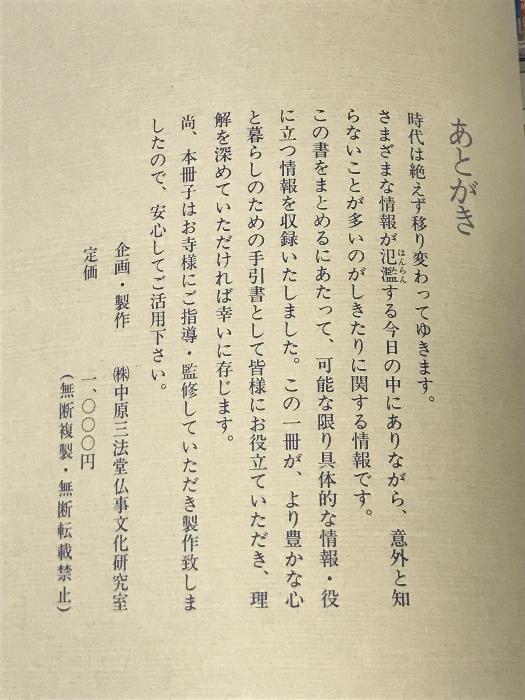 あとがき
時代は絶えず移り変わってゆきます。
さまざまな情報が氾濫する今日の中にありながら、意外と知
はんらん
らないことが多いのがしきたりに関する情報です。
この書をまとめるにあたって、可能な限り具体的な情報・役
に立つ情報を収録いたしました。この一冊が、より豊かな心
と暮らしのための手引書として皆様にお役立ていただき、理
解を深めていただければ幸いに存じます。
尚、本冊子はお寺様にご指導・監修していただき製作致しま
したので、安心してご活用下さい。
企画・製作 ㈱中原三法堂仏事文化研究室
定価 一、〇〇〇円
(無断複製・無断転載禁止)